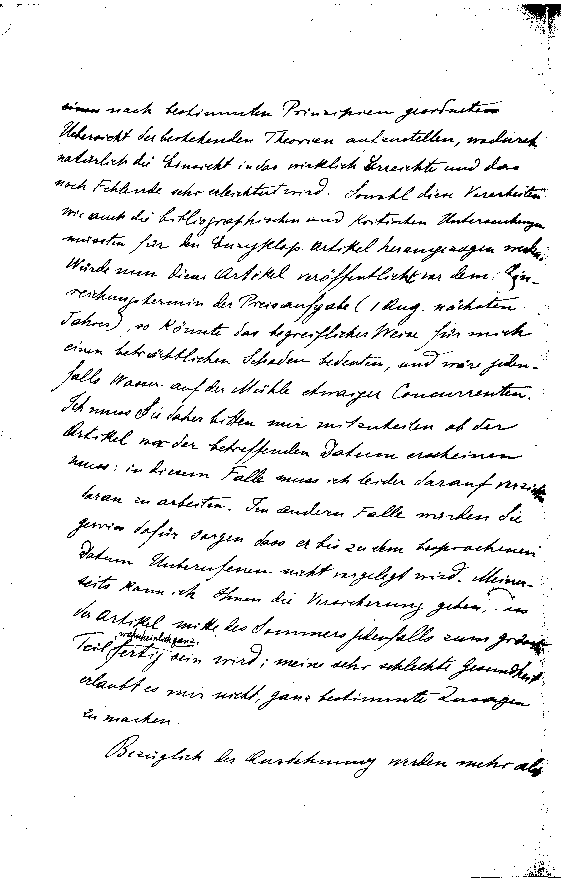 einen nach bestimmten Prinzipien geordneten
Uebersicht der bestehenden Theorien aufzustellen, wodurch
natürlich die Einsicht in das wirklich Erreichte und das
noch Fehlende sehr erleichtert wird. Sowohl diese Vorarbeiten
wie auch die bibliographischen und kritischen Untersuchungen
müssten für den Encyklop. Artikel herangezogen werden.
Würde nun dieser Artikel veröffentlicht vor dem Ein-
reichungstermin der Preisaufgabe (1 Aug. nächsten
Jahres), so könnte das begreiflicher Weise für mich
einen beträchtlichen Schaden bedeuten, und wäre jeden-
falls Wasser auf der Mühle etwaiger Concurrenten.
Ich muss Sie daher bitten mir mitzuteilen ob der
Artikel vor der betreffenden Datum erscheinen
muss: in diesem Falle muss ich leider darauf verzichten
daran zu arbeiten. Im andern Falle werden Sie
gewiss dafür sorgen dass er bis zu dem besprochenen
Datum Unberufenen nicht vorgelegt wird. Meiner-
seits kann ich Ihnen die Versicherung geben, dass
der Artikel mitte des Sommers jedenfalls zum grössten
Teil, wahrscheinlich ganz, fertig sein wird; meine sehr schlechte Gesundheit
erlaubt es mir nicht, ganz bestimmte Zusagen
zu machen.
Bezüglich der Ausdehnung werden mehr als